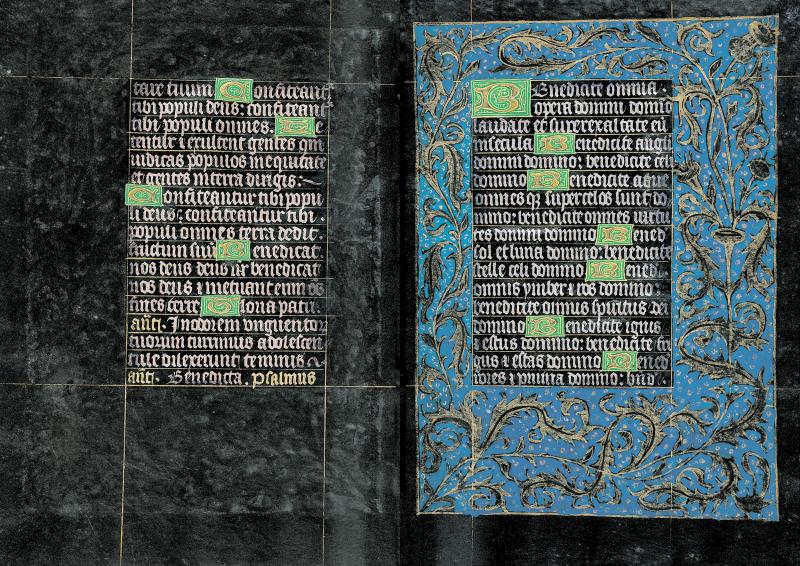 tare tuum Confiteant
tibi populi deus: confiteant
tibi populi omnes. Terra
iudicas populos in equitate
et gentes in terra dirigis:
Confiteantur tibi popu
li deus: confiteantur tibi
populi omnes terra dedit
fructum suū Benedicat
nos deus deus nr benedicat
nos deus & metuant eum oēs
fines terre Gloria patri.
añ. In odorem unguentor
tuorum currimus adolescen
tule dilexerunt te nimis
añ. Benedicta. psalmus
Benedicite omnia
opera domini domino
laudate et superexaltate eū
in secula Benedicite angli
domini domino: benedicite celi
domino Benedicite aque
omnes q; super celos sunt do
mino: benedicite omnes virtu
tes domini domino Bened
sol et luna domino: benedicite
stelle celi domino Bened
omnis ymber & ros domino
benedicite omnis spiritus dei
domino Benedicite ignis
& estus domino: benedicite fri
gus & estas domino Bened
rores & pruina domino: bñd